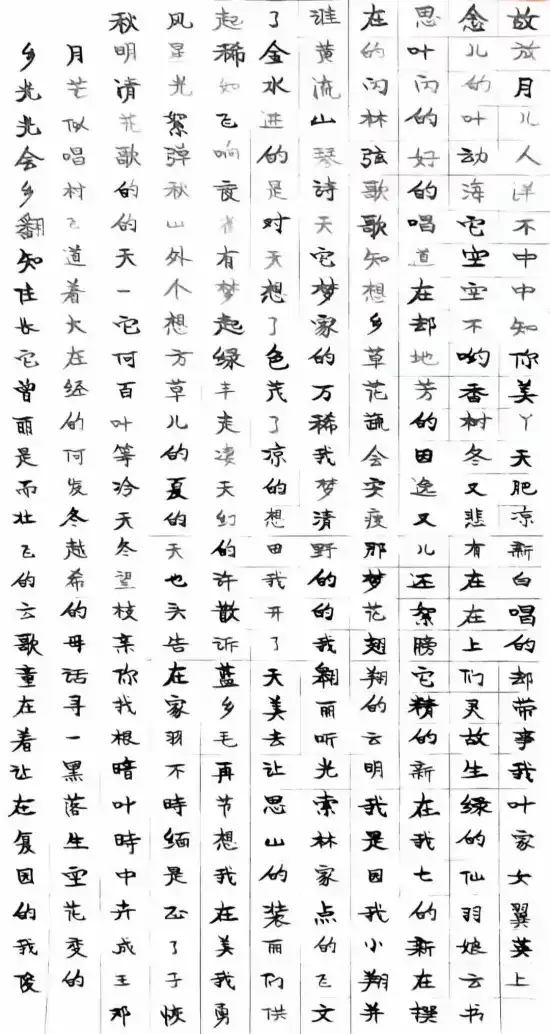 秋风起了淮在思念故
乡月明星稀金黄的叶儿放
光芒清光如水流丙丙的月
光似花絮飞进山林的叶儿
会唱歌弹响的琴弦好动人
乡村的秋夜是诗歌的海洋
翻飞的山雀对天歌唱它不
知道天外有天它知道空中
住着一个梦想梦想在空中
长大它想起了家乡却不知
它在何方绿色的草地哟你
曾经百草丰茂万花芳香美
丽的叶儿走了稀疏的树丫
是何等的凄凉我会因冬天
而发冷夏天的梦实逸又肥
壮冬天的幻想清瘦又悲凉
飞越冬天的田野那儿有新
的希望也许我的梦还在白
云的枝头散开的花絮在唱
歌母亲告诉了我翅膀上的
童话你在蓝天翱翔它们却
在寻找家乡美丽的精灵带
着一根羽毛去听云的故事
让黑暗不再让光明新生我
在落叶時节思索我在绿叶
复生時缅想山林是我的家
园空中是我的家园七仙女
的花卉正在装点我的羽翼
我变成了美丽的小新娘英
俊的王子我们飞翔在云上
邓恢勇供文并撰书